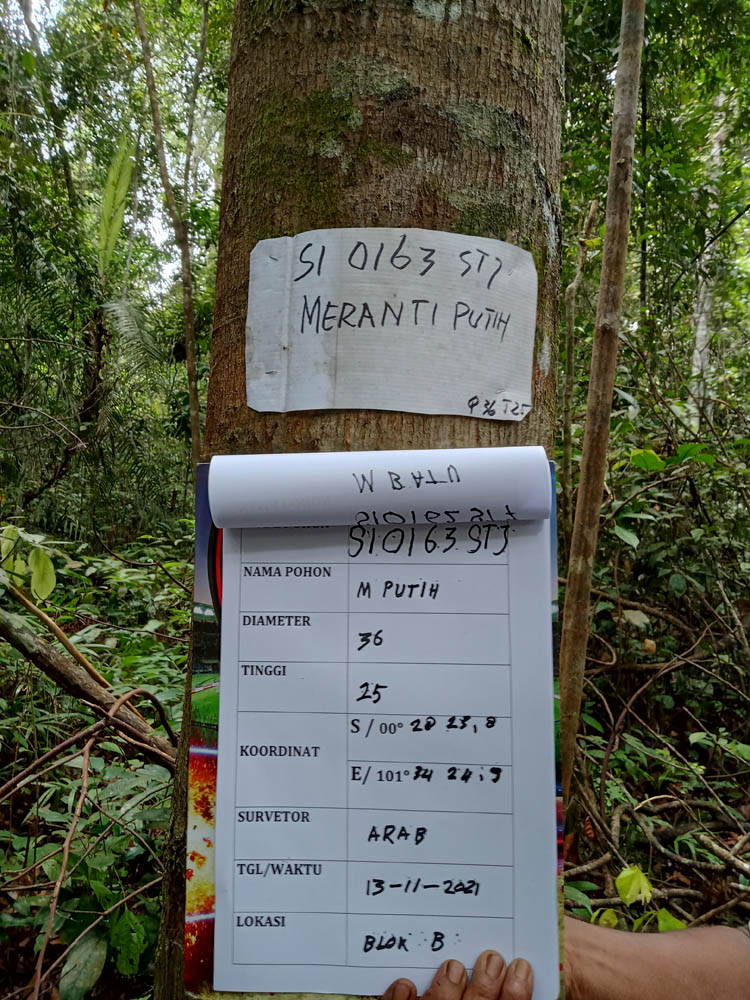 SI 0163 STJ
MERANTI PUTIH
Φ 36 T25
W BATU
SI0163 STJ
NAMA POHON M PUTIH
DIAMETER 36
TINGGI 25
KOORDINAT
S / 00° 20 23,8
E/ 101° 34 24,9
SURVETOR ARAB
TGL/WAKTU 13-11-2021
LOKASI BLOK B